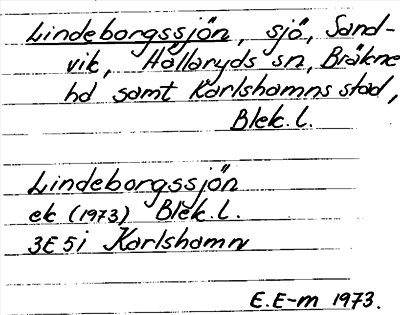 Lindeborgssjön, sjö, Sand-
vik, Hällaryds sn, Bräkne
hd samt Karlshamns stad,
Blek. l.
Lindeborgssjön
ek (1973) Blek. l.
3E5i Karlshamn
E. E-m 1973.